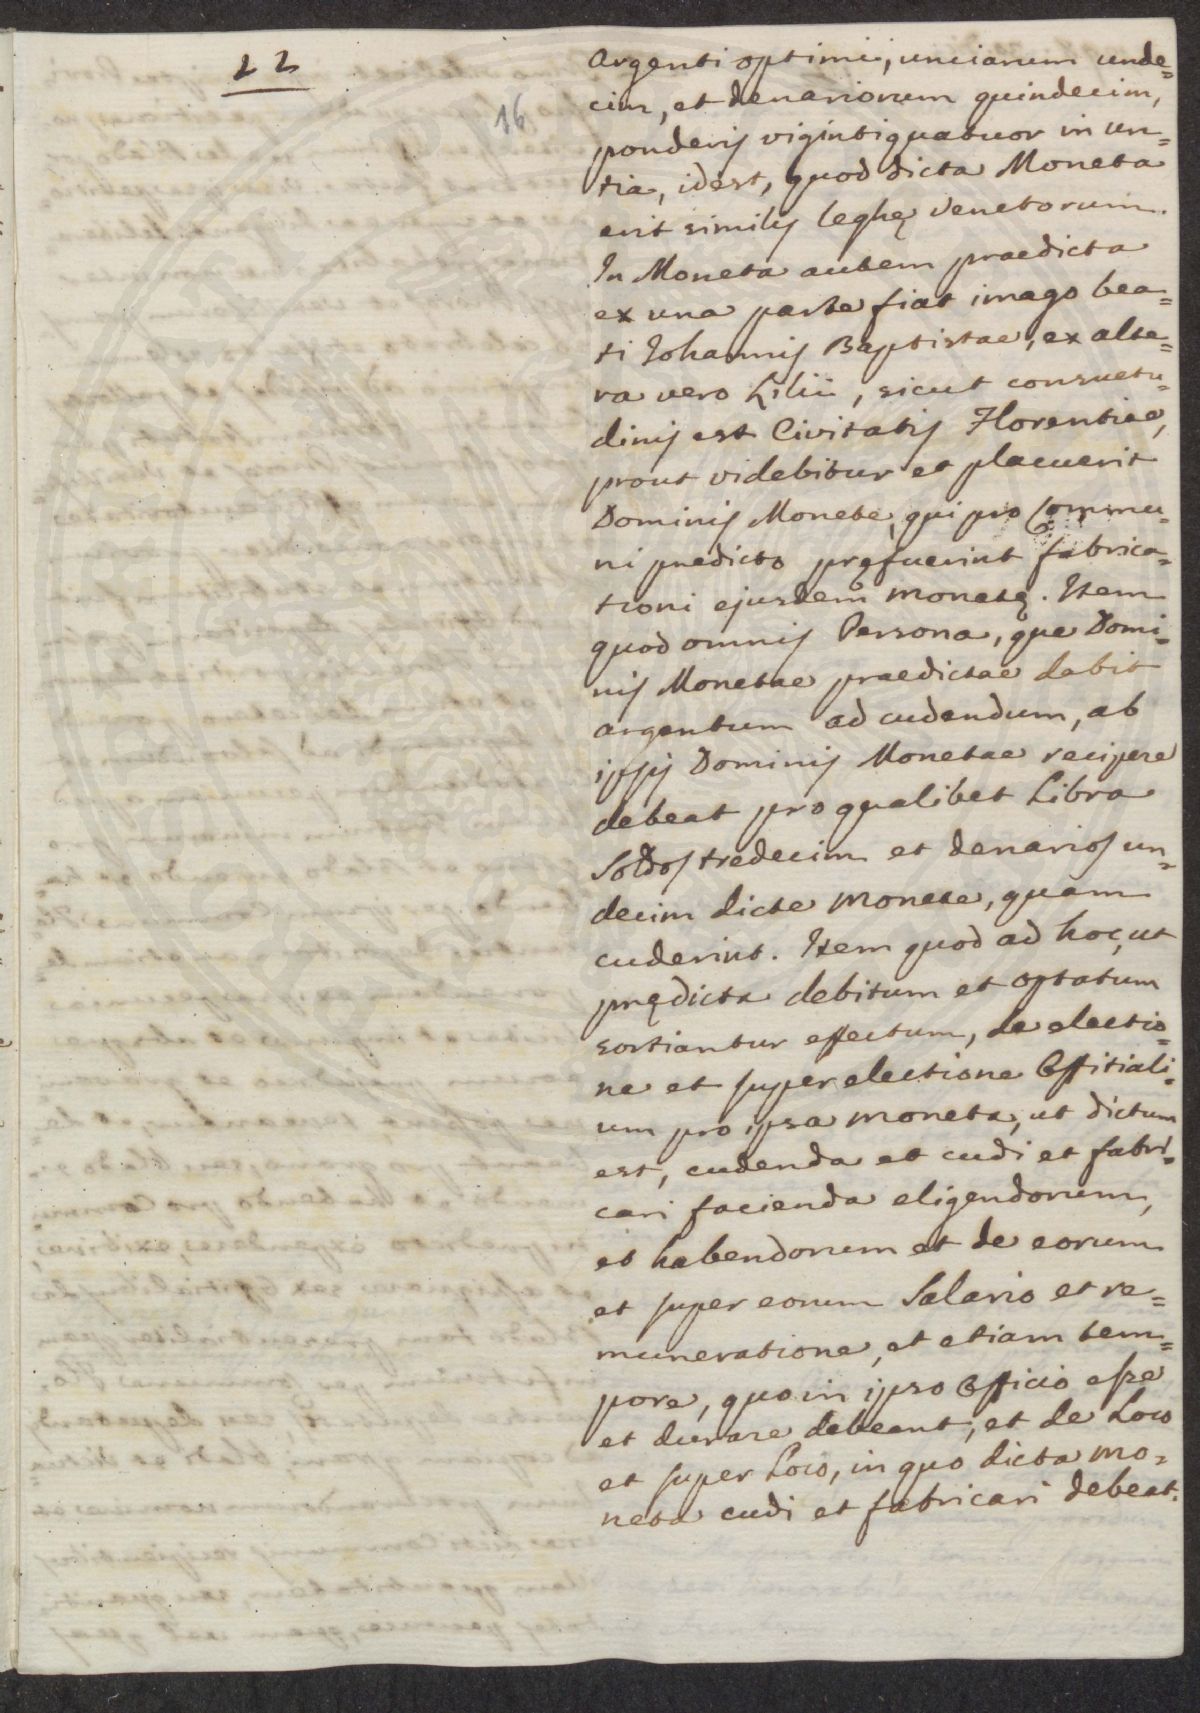 22
16
Argenti optimi, unciarum unde=
cim, et denariorum quindecim,
ponderis vigintiquatuor in un=
tia, idest, quod dicta Moneta
erit similis leghę Venetorum.
In Moneta autem praedicta
ex una parte fiat imago bea=
ti Johannis Baptistae, ex alte=
ra vero Lilii, sicut consuetu=
dinis est Civitatis Florentiae,
prout videbitur et placuerit
Dominis Monete, qui pro Commu=
ni predicto pręfuerint fabrica=
tioni ejusdem monetę. Item
quod omnis Persona, que Domi=
nis Monetae praedictae dabit
argentum ad cudendum, ab
ipsis Dominis Monetae recipere
debeat pro qualibet Libra
Soldos tredecim et denarios un=
decim dicte monete, quam
cuderint. Item quod ad hoc, ut
prędicta debitum et optatum
sortiantur effectum, de electio=
ne et super electione Offitiali=
um pro ipsa moneta, ut dictum
est, cudenda et cudi et fabri=
cari facienda eligendorum,
et habendorum et de eorum
et super eorum Salario et re=
muneratione, et etiam tem=
pore, quo in ipso Officio esse
et durare debeant, et de Loco
et super Loco, in quo dicta mo=
neta cudi et fabricari debeat.